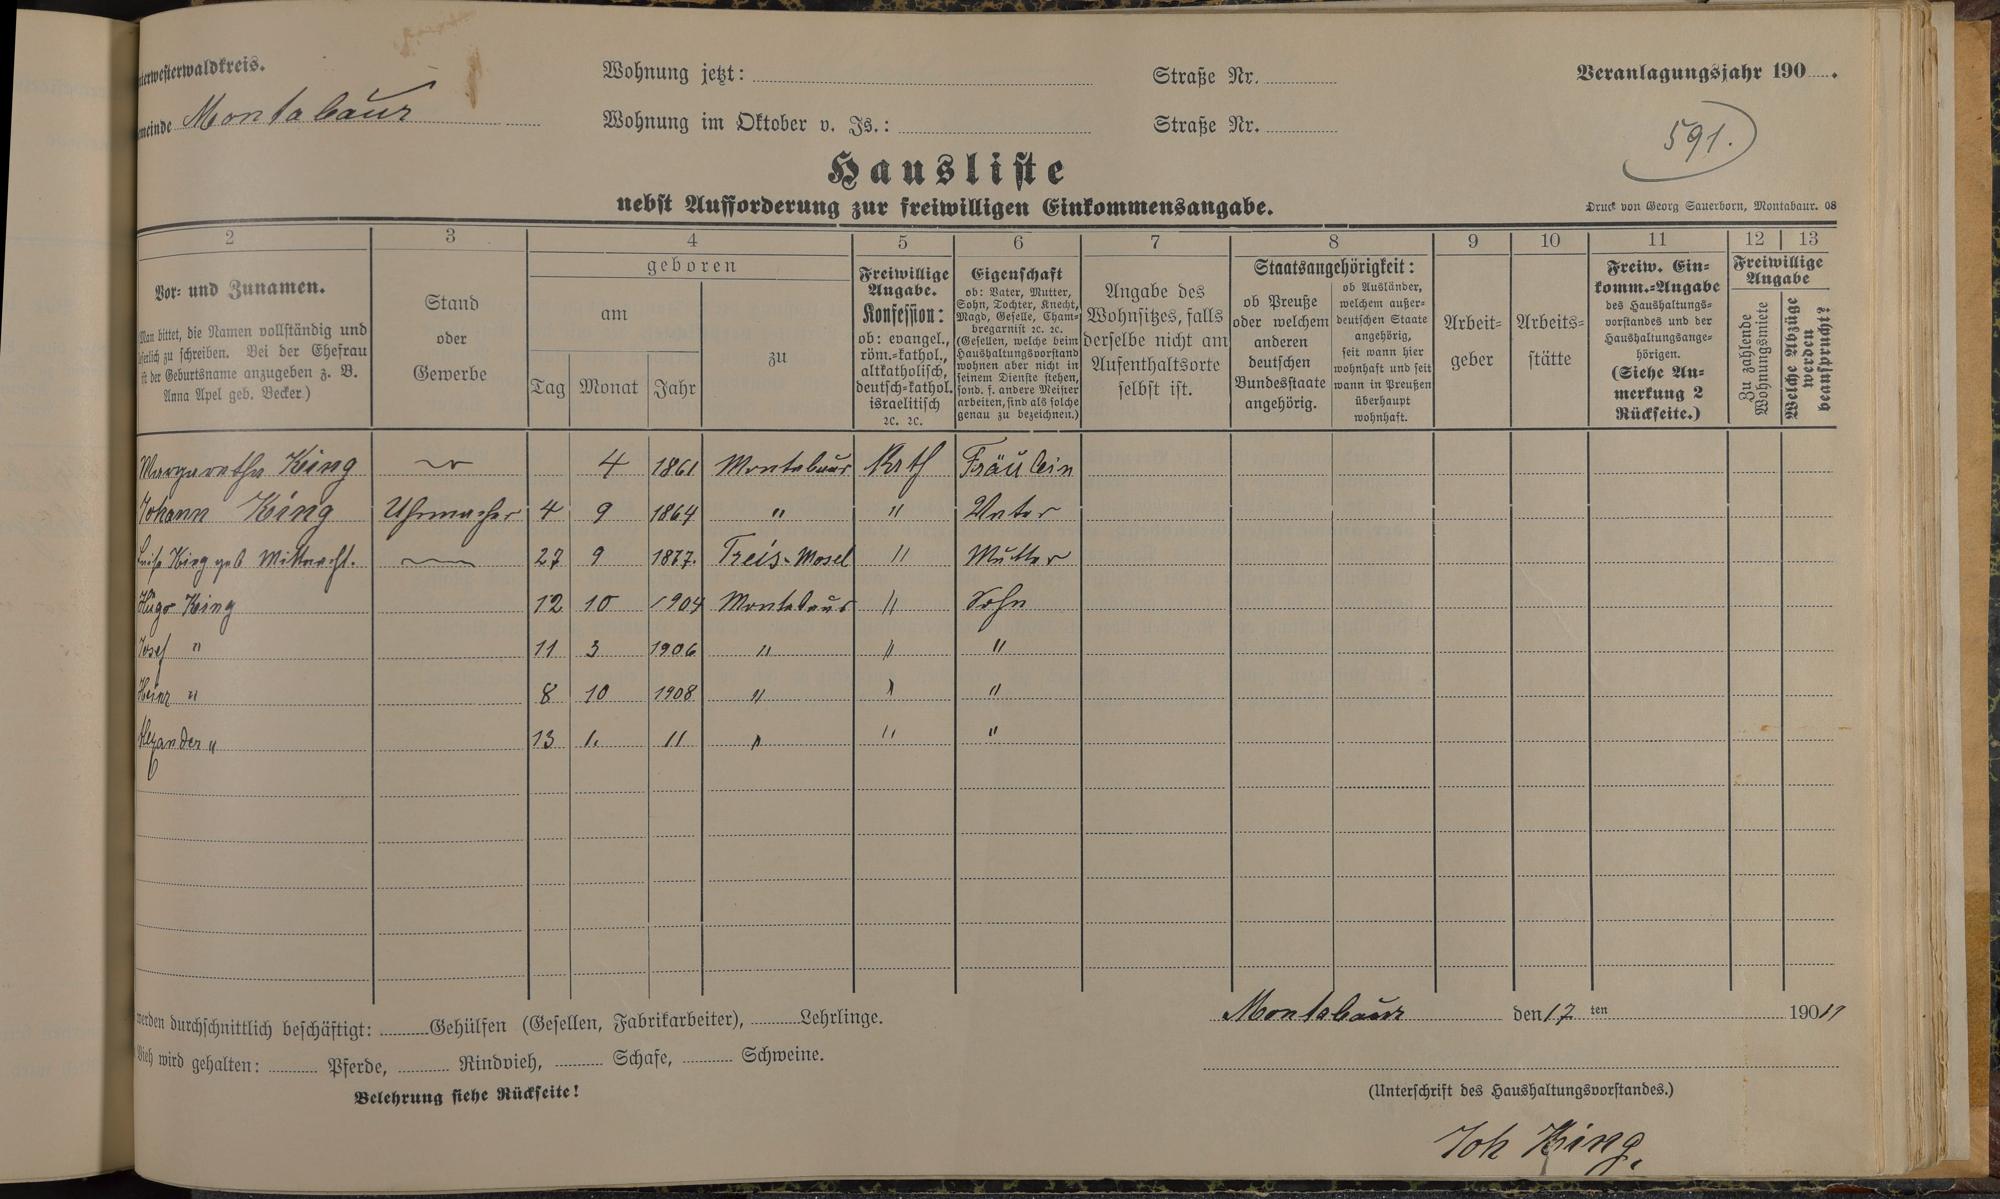 nterwesterwaldkreis.
Wohnung jetzt:
Straße Nr.
Veranlagungsjahr 190 .
meinde Montabaur
Wohnung im Oktober v. Js.:
Straße Nr.
591.
Hausliste
nebst Aufforderung zur freiwilligen Einkommensangabe.
Druck von Georg Sauerborn, Montabaur. 08
2 3 4 5 6 7 8 9 10 11 12 13
Vor- und Zunamen.
Man bittet, die Namen vollständig und
leserlich zu schreiben. Bei der Ehefrau
ist der Geburtsname anzugeben z. B.
Anna Apel geb. Becker.)
Stand
oder
Gewerbe
geboren
am
Tag Monat Jahr
zu
Freiwillige
Angabe.
Konfession:
ob: evangel.,
röm.-kathol.,
altkatholisch,
deutsch-kathol.
israelitisch
ꝛc. ꝛc.
Eigenschaft
ob: Vater, Mutter,
Sohn, Tochter, Knecht,
Magd, Geselle, Cham-
bregarnist ꝛc. ꝛc.
(Gesellen, welche beim
Haushaltungsvorstand
wohnen aber nicht in
seinem Dienste stehen,
sond. f. andere Meister
arbeiten, sind als solche
genau zu bezeichnen.)
Angabe des
Wohnsitzes, falls
derselbe nicht am
Aufenthaltsorte
selbst ist.
Staatsangehörigkeit:
ob Preuße
oder welchem
anderen
deutschen
Bundesstaate
angehörig.
ob Ausländer,
welchem außer-
deutschen Staate
angehörig,
seit wann hier
wohnhaft und seit
wann in Preußen
überhaupt
wohnhaft.
Arbeit-
geber
Arbeits-
stätte
Freiw. Ein-
komm.-Angabe
des Haushaltungs-
vorstandes und der
Haushaltungsange-
hörigen.
(Siehe An-
merkung 2
Rückseite.)
Freiwillige
Angabe
Zu zahlende
Wohnungsmiete
Welche Abzüge
werden
beansprucht?
Margaretha King 4 1861 Montabaur Kath Fräulein
Johann King Uhrmacher 4 9 1864 " " Vater
Luise King geb 27 9 1877. Treis-Mosel " Mutter
Hugo King 12 10 1904 Montabaur " Sohn
Josef " 11 3 1906 " " "
Heinr " 8 10 1908 " " "
Alexander " 13 1. 11 " " "
werden durchschnittlich beschäftigt: Gehülfen (Gesellen, Fabrikarbeiter), Lehrlinge.
Montabaur den 17 ten 190 11
Vieh wird gehalten: Pferde, Rindvieh, Schafe, Schweine.
Belehrung siehe Rückseite!
(Unterschrift des Haushaltungsvorstandes.)
Joh King.